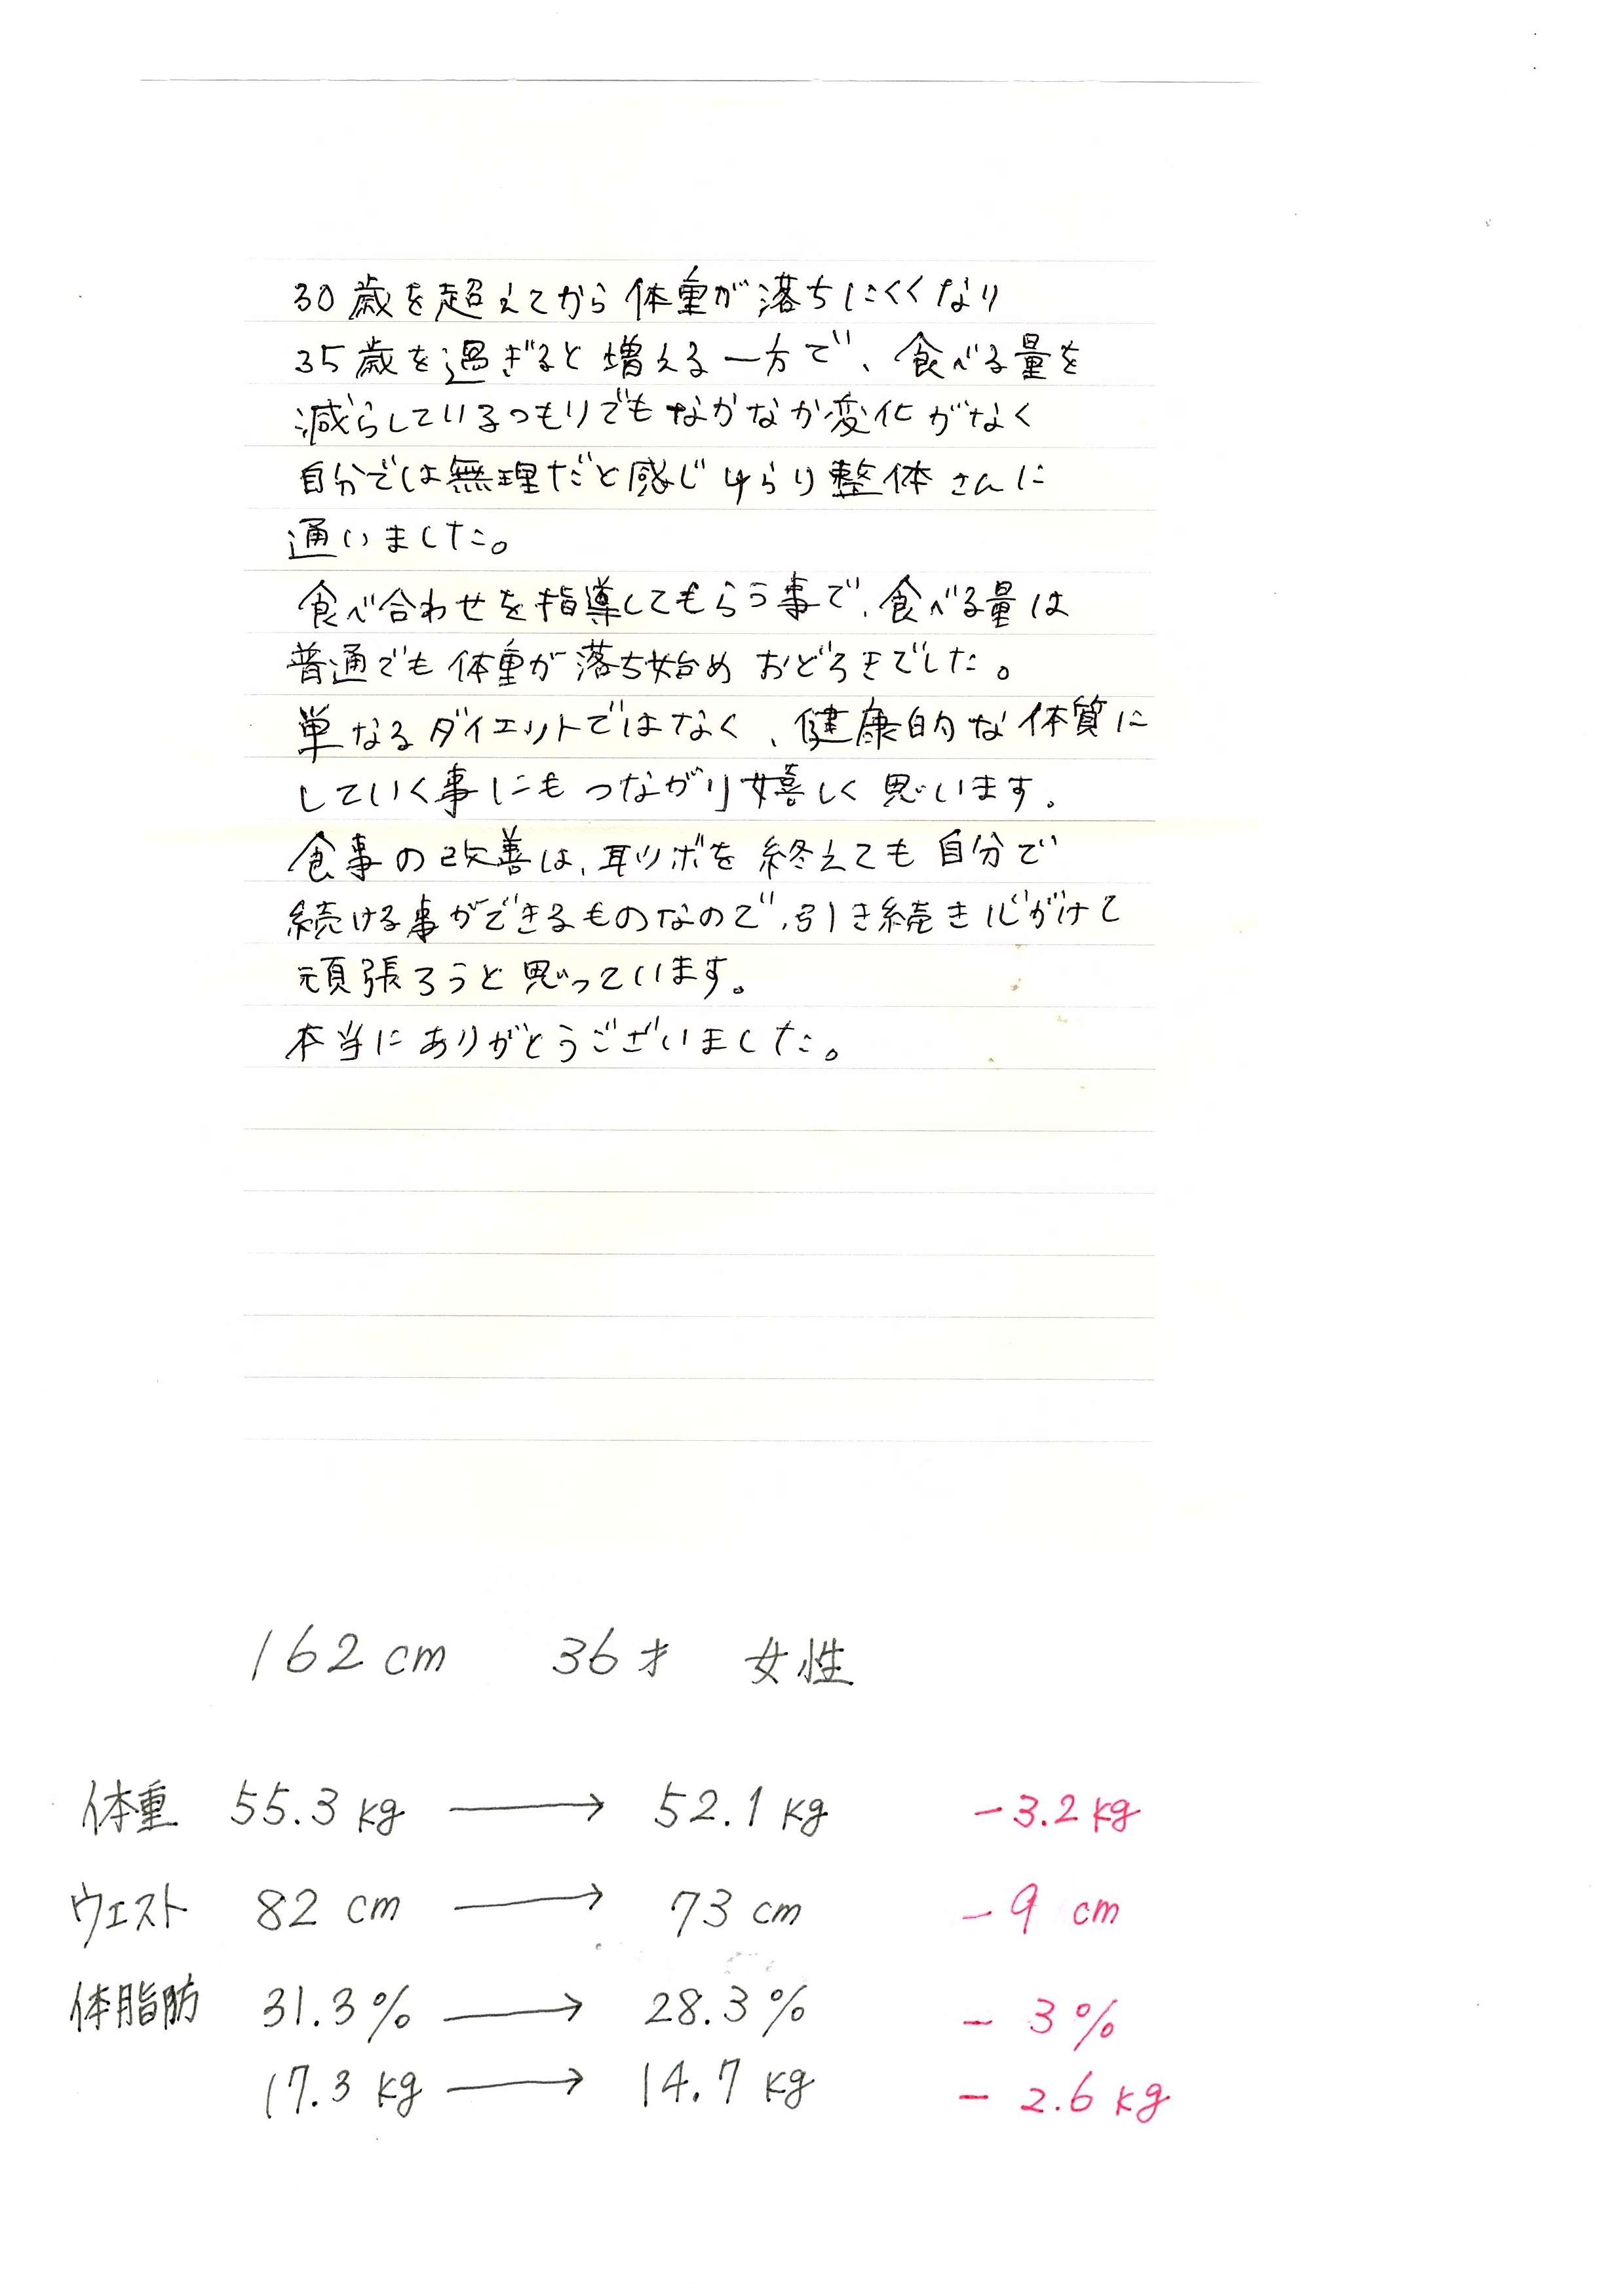 30歳を超えてから体重が落ちにくくなり
35歳を過ぎると増える一方で、食べる量を
減らしているつもりでもなかなか変化がなく
自分では無理だと感じゆらり整体さんに
通いました。
食べ合わせを指導してもらう事で、食べる量は
普通でも体重が落ち始めおどろきでした。
単なるダイエットではなく、健康的な体質に
していく事にもつながり嬉しく思います。
食事の改善は、耳ツボを終えても自分で
続ける事ができるものなので、引き続き心がけて
頑張ろうと思っています。
本当にありがとうございました。
162cm 36才 女性
体重 55.3kg → 52.1kg -3.2kg
ウェスト 82cm → 73cm -9cm
体脂肪 31.3% → 28.3% -3%
17.3kg → 14.7kg -2.6kg